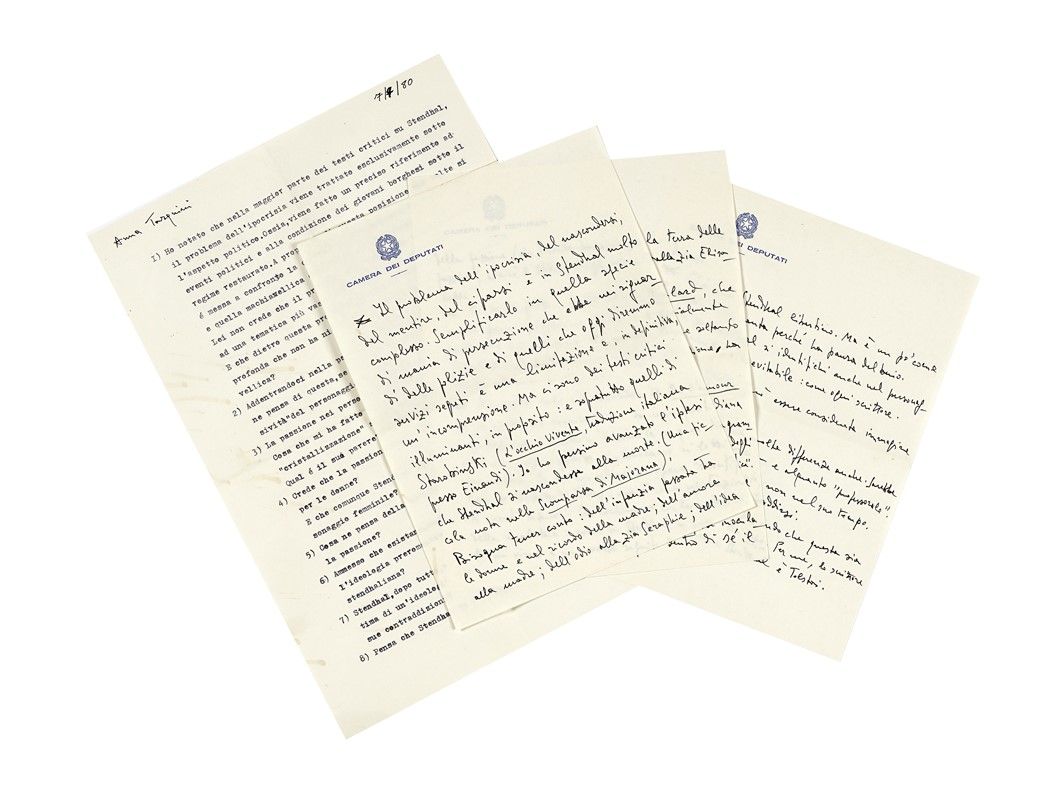 7/4/80
Anna Tarquini
1) Ho notato che nella maggior parte dei testi critici su Stendhal,
il problema dell'ipocrisia viene trattato esclusivamente sotto
l'aspetto politico. Ossia, viene fatto un preciso riferimento ad
eventi politici e alla condizione dei giovani borghesi sotto il
regime restaurato. A pro
posizione
é messa a confronto la
e quella machiavellica
Lei non crede che il pr
ad una tematica più
E che dietro questa pr
profonda che non ha ni
vellica?
2) Addentrandoci nella ps
ne pensa di questa, se
sività" del personaggi
la passione nei perso
3) Cosa che mi ha fatto
"cristallizzazione"
Qual é il suo parere
4) Crede che la passion
per le donne?
E che comunque Stend
sonaggio femminile?
5) Cosa ne pensa della
la passione?
6) Ammesso che esistar
l'ideologia preromi
stendhaliana?
7) Stendhal, dopo tutt
tima di un'ideolog
sue contraddizioni
8) Pensa che Stendha
CAMERA DEI DEPUTATI
Il problema dell'ipocrisia, del nascondersi,
del mentire, del ciparsi è in Stendhal molto
complesso. Semplificarlo in quella specie
di mania di persecuzione che ebbe nei riguar
di delle polizie e di quelli che oggi diremmo
servizi segreti è una limitazione e, in definitiva,
un'incomprensione. Ma ci sono dei testi critici
illuminanti, in proposito: e soprattutto quelli di
Starobinski (L'occhio vivente, traduzione italiana
presso Einaudi). Io ho persino avanzato l'ipotesi
che Stendhal si nascondesse alla morte. (Una pic
cola nota nella Scomparsa di Majorana).
Bisogna tener conto: dell'infanzia passata tra
le donne e nel ricordo della madre; dell'amore
alla madre; dell'odio alla zia Séraphie; dell'idea
CAMERA DEI DEPUTATI
la terra delle
della zia Elisa
che
soltanto
diana
sentro di sé il
DEI DEPUTATI
Stendhal libertino. Ma è un po' come
canta perché ha paura del buio.
si identifichi anche nel personag-
evitabile: come ogni scrittore.
essere considerata immagine
molte differenze anche
e alquanto "professorale".
non nel suo tempo.
che questa sia
Per me, lo scrittore
è Tolstoi.